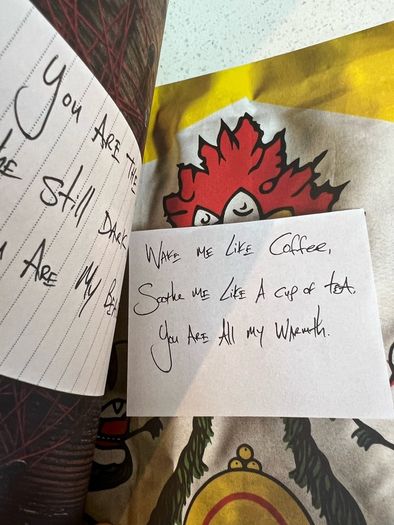 You ARE THE
Still DARK
ARE MY
WAKE ME LIKE Coffee,
Soothe ME LIKE A cup of tEA.
You ARE All MY WARMth.